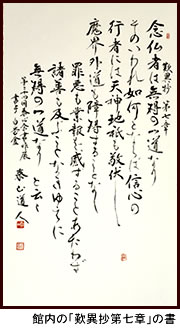 歎異抄 第七章
念仏者は無碍の一道なり
そのいわれ如何とならば信心の
行者には天神地祇も敬伏し
魔界外道も障碍することなし
罪悪も業報を感ずることあたわず
諸善も及ぶことなきゆえに
無碍の一道なり と云々
泰山道人
館内の「歎異抄第七章」の書